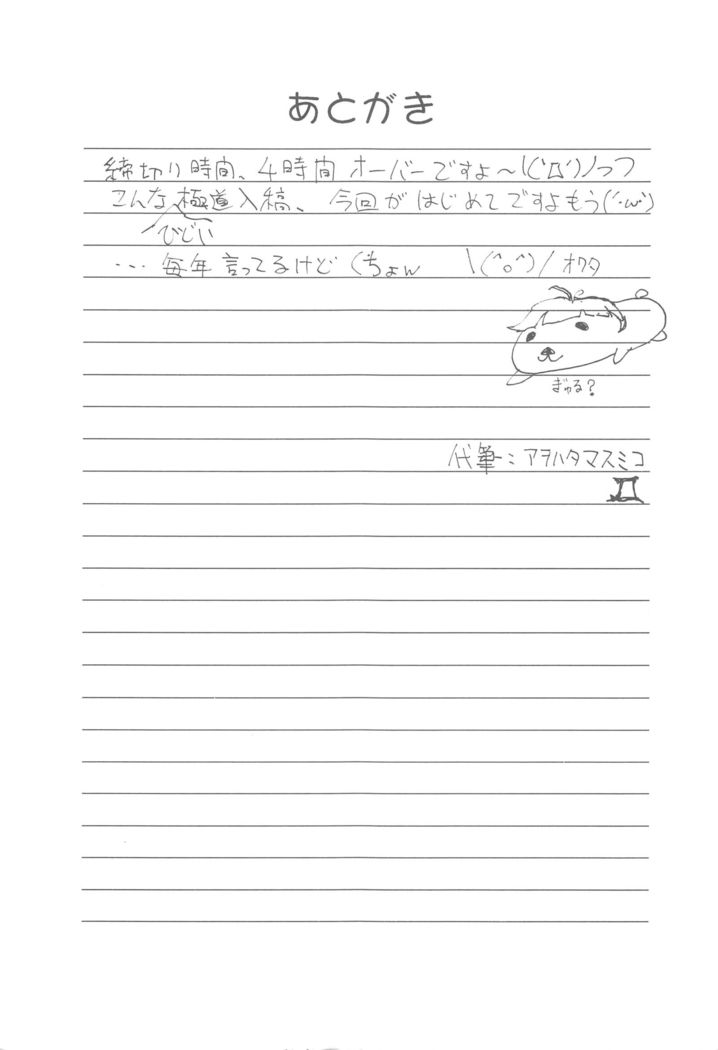 あとがき
締切り時間、4時間オーバーですよ〜\(('Д')ノっつ
こんな極道入稿、今回がはじめてですよもう(´・ω・`)
ひどい
… 毎年言ってるけど くちょん \(^o^)/ オワタ
ぎゅる?
代筆:アヲハタマスミコ